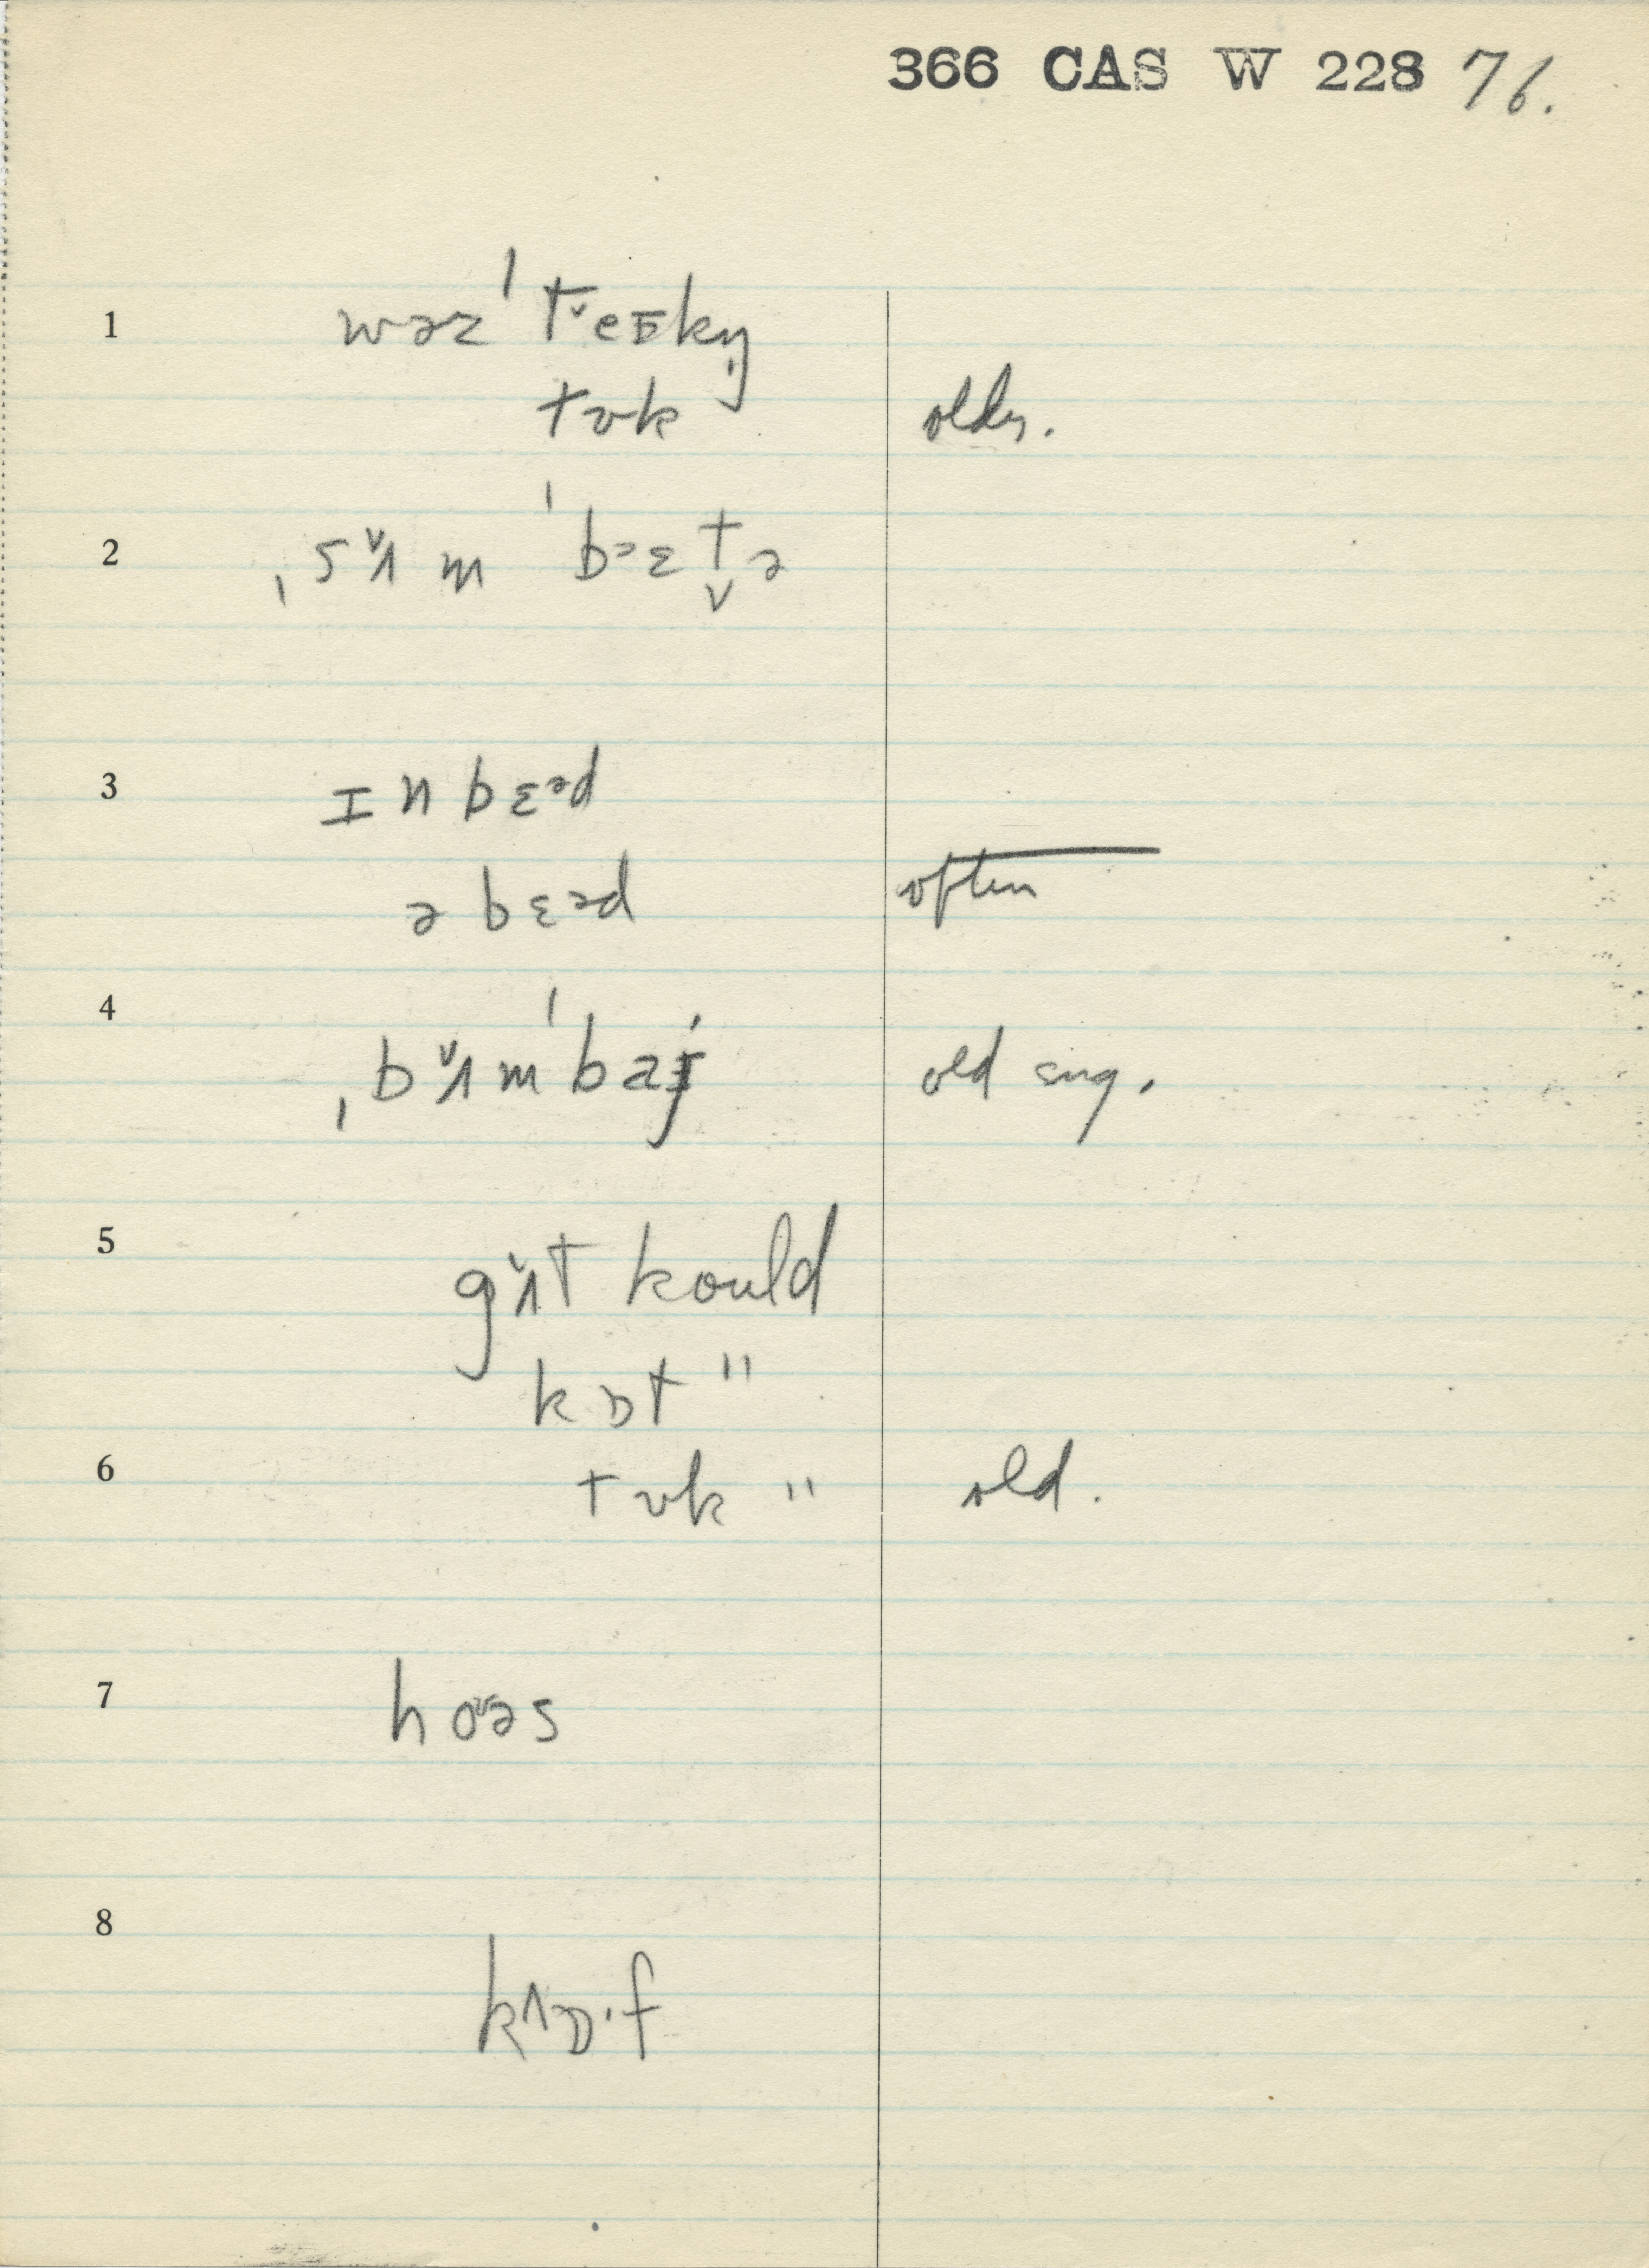 366 CAS W 228 76.
1 wəz ˈt̬eɪkŋ̩
tʊk older.
2 ˌsʌ̌m ˈbɛət̬ə
3 ɪn bɛəd
ə bɛəd often
4 ˌbʌ̌mˈbaɪ old sug.
5 gʌ̌t kould
kɒt "
6 tʊk " old.
7 hoʊəs
8